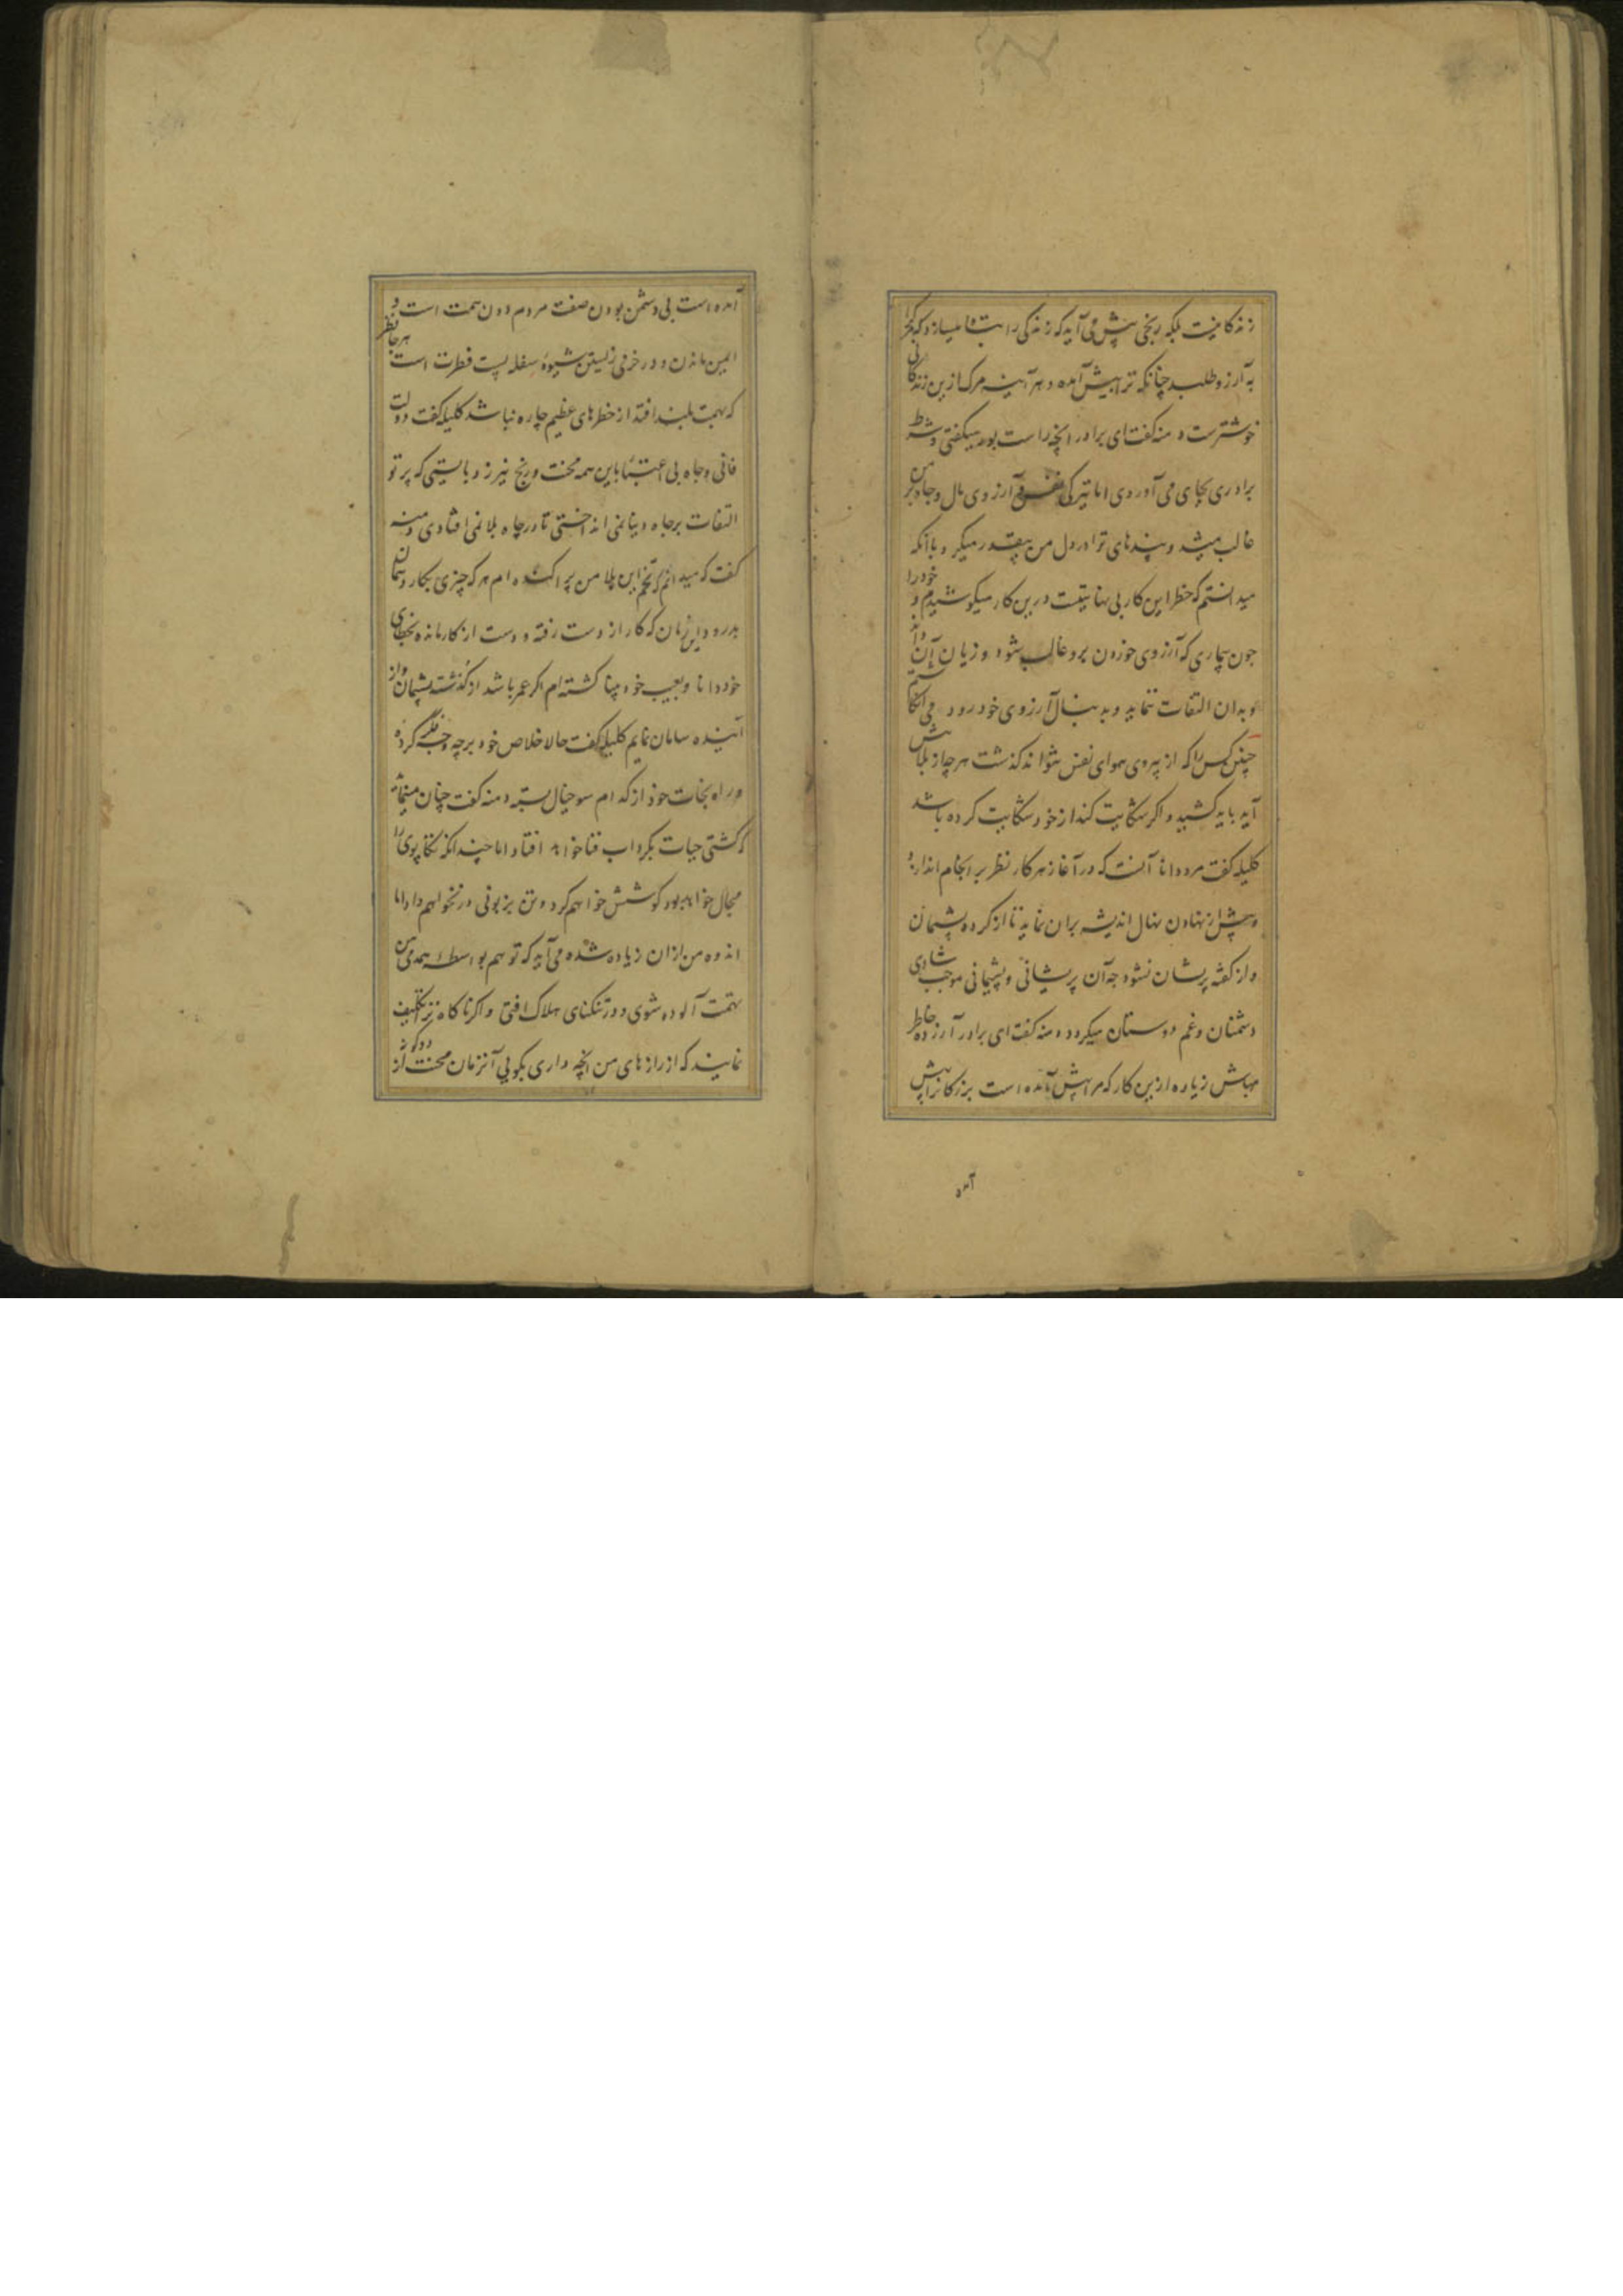 زندگانیست بلکه رنجی پیش می آید که زندگی را میسازد که مرگ را
به آرزو طلبد چنانکه ترا پیش آمده و هر آینه مرگ ازین زندگانی
خوشترست دمنه گفت ای برادر انچه راست بود میگفتی و شرط
برادری بجای می آوردی اما تیرگی نفس و آرزوی مال و جاه بر من
غالب میشد و پندهای ترا در دل من بیقدر میکرد و با آنکه
میدانستم که خطر این کار بی نهایتست درین کار میکوشیدم و خود را
چون بیماری که آرزوی خوردن برو غالب شود و زیان آن داند
و بدان التفات ننماید و بدنبال آرزوی خود رود می انگاشتم
چنین کس را که از پیروی هوای نفس نتواند گذشت هر چه از بلا پیش
آید باید کشید و اگر شکایت کند از خود شکایت کرده باشد
کلیله گفت مرد دانا آنست که در آغاز هر کار نظر بر انجام اندازد
و پیش از نهادن نهال اندیشه بران نماید تا از کرده پشیمان
و از گفته پریشان نشود چه آن پریشانی و پشیمانی موجب شادی
دشمنان و غم دوستان میگردد دمنه گفت ای برادر آزرده خاطر
مباش زیاده ازین کار که مرا پیش آمده است بزرگانرا پیش
آمده
آمده است بی دشمن بودن صفت مردم دون همت است و
ایمن ماندن و در خرمی زیستن شیوه سفله پست فطرت است هر جا نظر
که بهمت بلند افتد از خطرهای عظیم چاره نباشد کلیله گفت دولت
فانی و جاه بی اعتبار باین همه محنت و رنج نیرزد بایستی که پرتو
التفات بر جاه دنیا نمی انداختی تا در چاه بلا نمی افتادی دمنه
گفت که میدانم که تخم این بلا من پراکنده ام هر که چیزی بکارد همان
بدرود و این زمان که کار از دست رفته و دست از کار مانده بخطای
خود دانا و بعیب خود بینا گشته ام اگر عمر باشد از گذشته پشیمان و از
آینده سامان نمایم کلیله گفت حالا خلاص خود بر چه وجه فکر کرده
و راه نجات خود از کدام سو خیال بسته دمنه گفت چنان مینماید
که کشتی حیات بگرداب فنا خواهد افتاد اما چندانکه تکاپوی را
مجال خواهد بود کوشش خواهم کرد و تن بزبونی در نخواهم داد اما
اندوه من ازان زیاده شده می آید که تو هم بواسطه همدمی من
بتهمت آلوده شوی و در تنگنای هلاک افتی و اگر ناگاه ترا تکلیف
نمایند که از رازهای من انچه داری بگویی آنزمان محنت از دو گونه